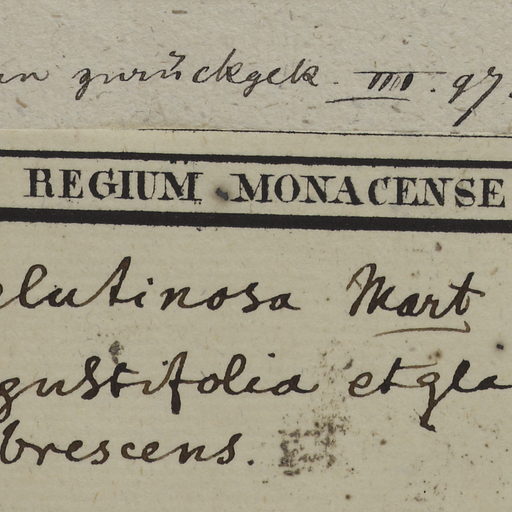 un zurückgek. III. 97.
REGIUM MONACENSE
elutinosa Mart
gustifolia et gla
brescens.